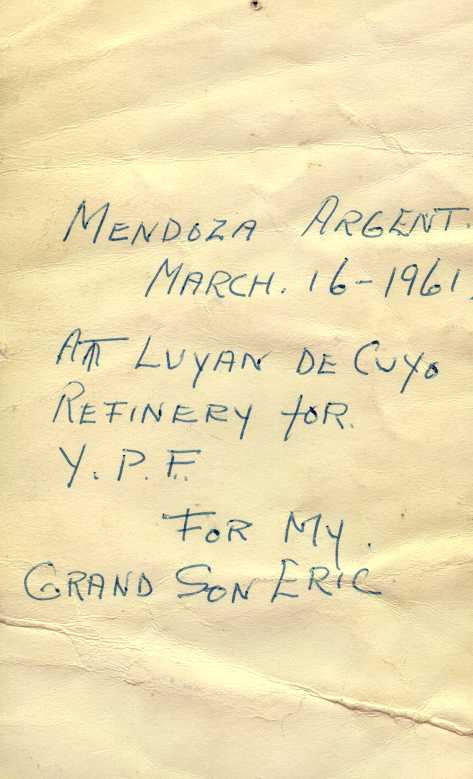 MENDOZA ARGENT.
MARCH. 16-1961
ATT LUYAN DE CUYO
REFINERY FOR.
Y. P. F.
FOR MY.
GRAND SON ERIC